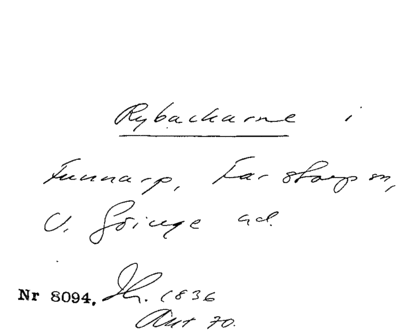 Rybackarne i
Funnarp, Farstorps sn,
V. Göinge hd.
Nr 8094. Jh. 1836
Aut 70.